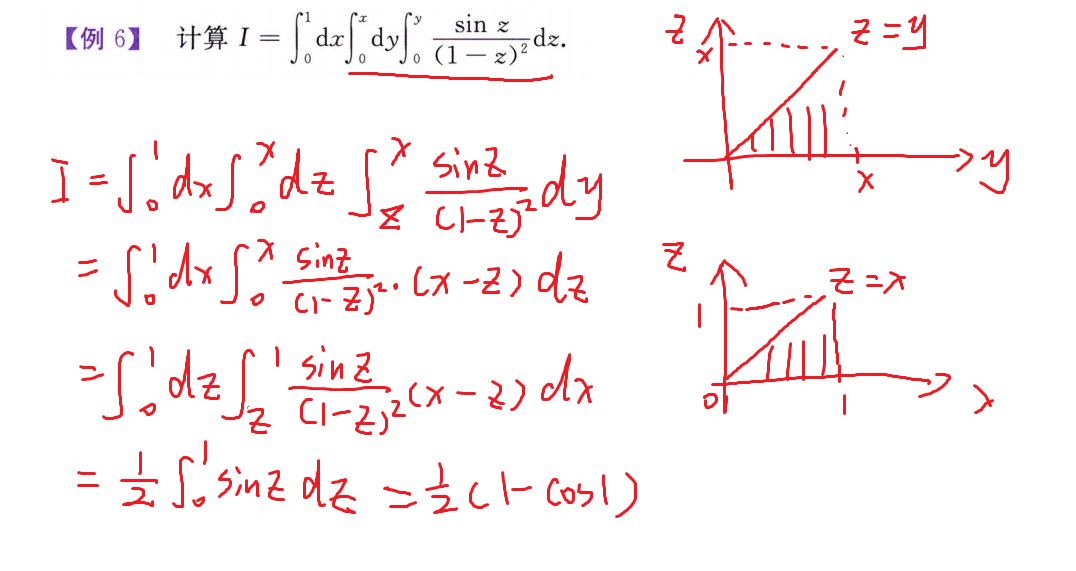 【例 6】 计算 I = ∫₀¹ dx ∫₀ˣ dy ∫₀ʸ \frac{sin z}{(1 − z)²} dz.
I = ∫₀¹ dx ∫₀ˣ dz ∫_z^x \frac{sin z}{(1-z)²} dy
= ∫₀¹ dx ∫₀ˣ \frac{sin z}{(1-z)²} · (x - z) dz
= ∫₀¹ dz ∫_z^1 \frac{sin z}{(1-z)²} (x - z) dx
= \frac{1}{2} ∫₀¹ sin z dz = \frac{1}{2} (1 - cos1)
z
x
z = y
x
y
z
1
z = x
0
1
x